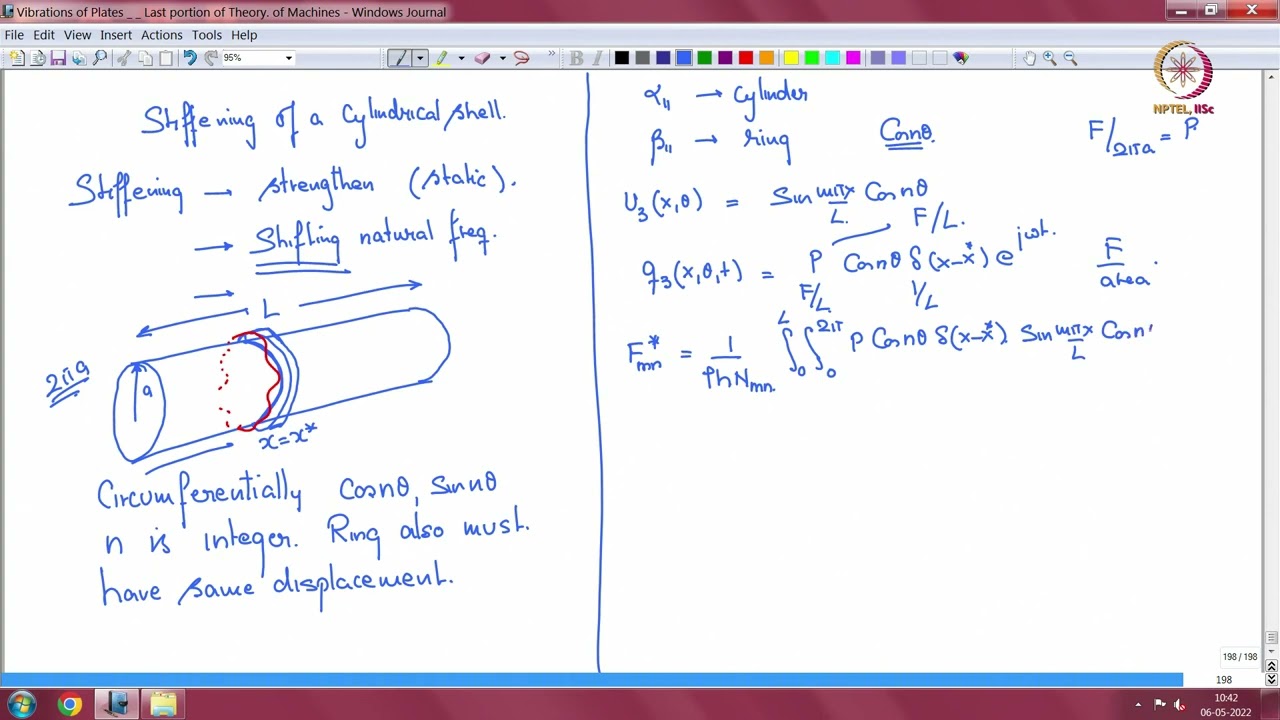 Vibrations of Plates _ _ Last portion of Theory. of Machines - Windows Journal
File Edit View Insert Actions Tools Help
95%
B I
NPTEL, IISc
Stiffening of a Cylindrical shell.
Stiffening → strengthen (static).
→ Shifting natural freq.
→
L
2πa
a
x=x*
Circumferentially Cosnθ, Sinnθ
n is integer. Ring also must.
have same displacement.
α₁₁ → cylinder
β₁₁ → ring Cosnθ. F/2πa = P
U₃(x,θ) = Sin mπx/L. Cosnθ
F/L.
q₃(x,θ,t) = P Cosnθ δ(x-x*) e^jωt. F/area.
F/L 1/L
F*mn = 1/ρhNmn. ∫₀^L ∫₀^2π P Cosnθ δ(x-x*). Sin mπx/L Cosn
198 / 198
198
10:42
06-05-2022